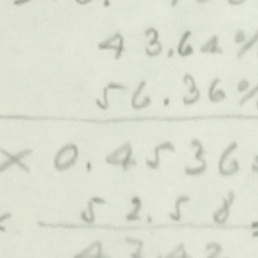 43.64%
56.36%
× 0.4536
52.58